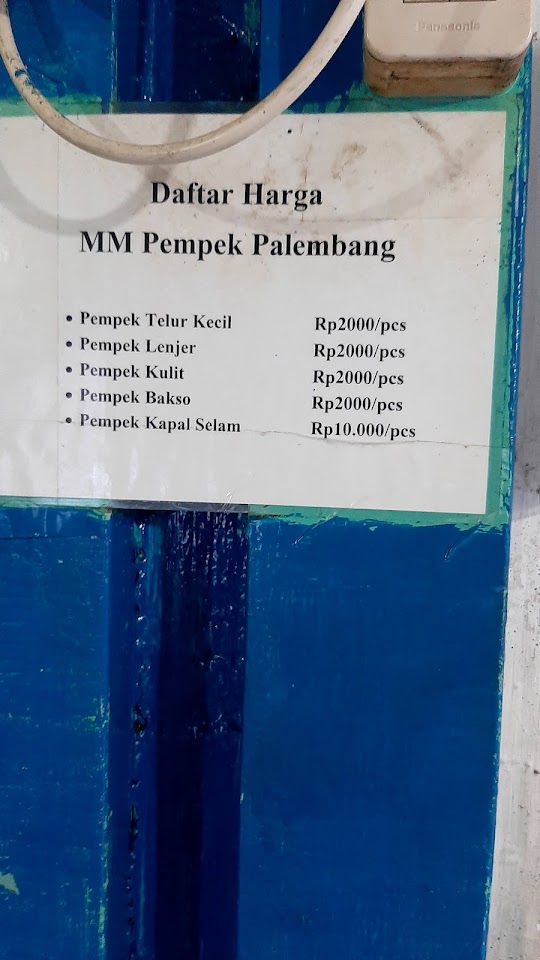 Panasonic
Daftar Harga
MM Pempek Palembang
• Pempek Telur Kecil Rp2000/pcs
• Pempek Lenjer Rp2000/pcs
• Pempek Kulit Rp2000/pcs
• Pempek Bakso Rp2000/pcs
• Pempek Kapal Selam Rp10.000/pcs